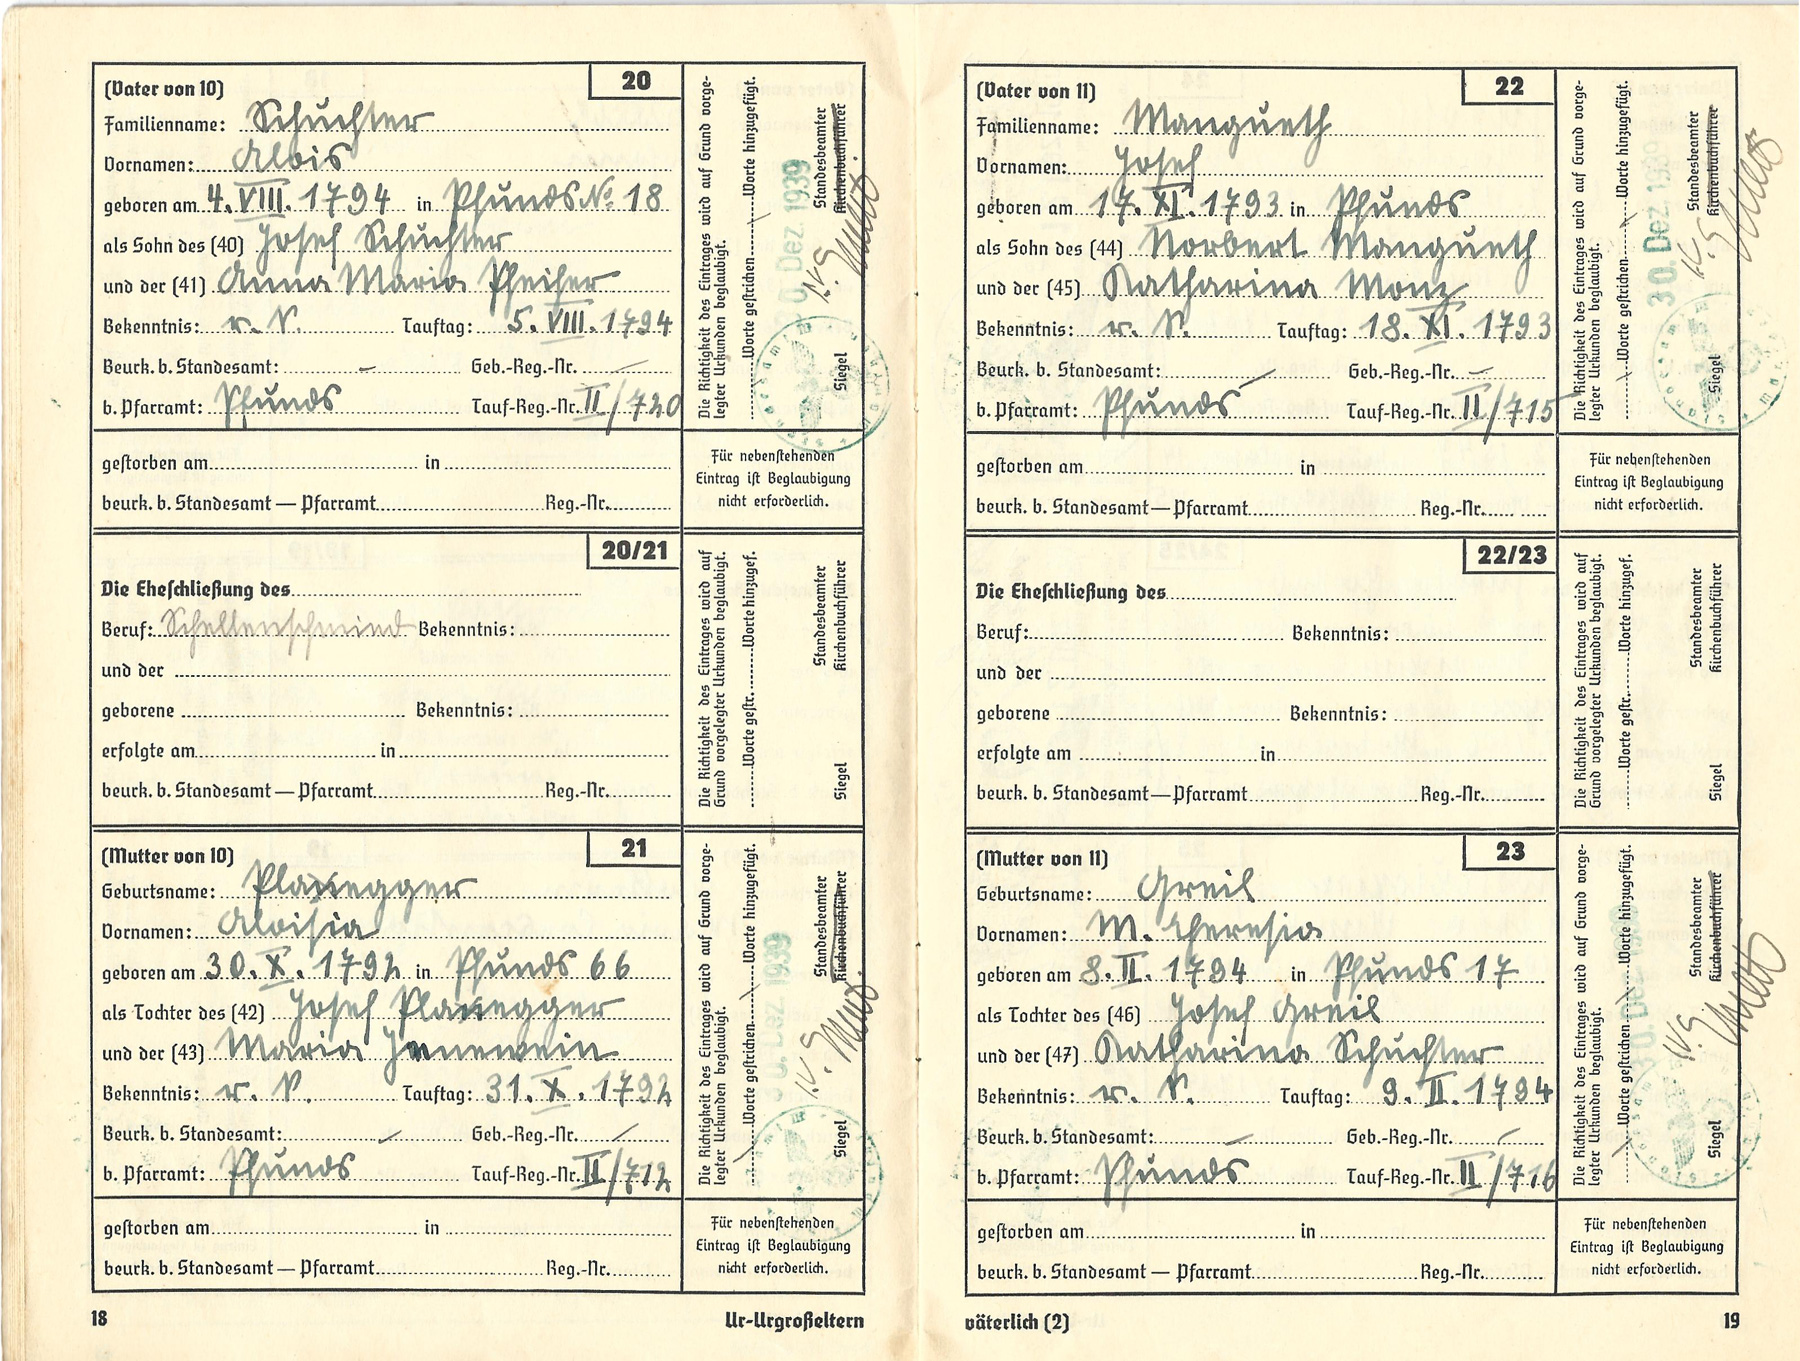 (Vater von 10) 20
Familienname: Schuchter
Vornamen: Alois
geboren am 4. VIII. 1794 in Pfunds No 18
als Sohn des (40) Josef Schuchter
und der (41) Anna Maria Pfeifer
Bekenntnis: r. K. Tauftag: 5. VIII. 1794
Beurk. b. Standesamt: — Geb.-Reg.-Nr. —
b. Pfarramt: Pfunds Tauf-Reg.-Nr. II/720
gestorben am in
beurk. b. Standesamt — Pfarramt Reg.-Nr.
Die Richtigkeit des Eintrages wird auf Grund vorge-
legter Urkunden beglaubigt.
Worte gestrichen Worte hinzugefügt.
30. Dez. 1939
Standesbeamter
Kirchenbuchführer
Siegel
Für nebenstehenden
Eintrag ist Beglaubigung
nicht erforderlich.
20/21
Die Eheschließung des
Beruf: Schellenschmied Bekenntnis:
und der
geborene Bekenntnis:
erfolgte am in
beurk. b. Standesamt — Pfarramt Reg.-Nr.
Die Richtigkeit des Eintrages wird auf
Grund vorgelegter Urkunden beglaubigt.
Worte gestr. Worte hinzugef.
Standesbeamter
Kirchenbuchführer
Siegel
(Mutter von 10) 21
Geburtsname: Plangger
Vornamen: Aloisia
geboren am 30. X. 1792 in Pfunds 66
als Tochter des (42) Josef Plangger
und der (43) Maria Jenewein
Bekenntnis: r. K. Tauftag: 31. X. 1792
Beurk. b. Standesamt: — Geb.-Reg.-Nr. —
b. Pfarramt: Pfunds Tauf-Reg.-Nr. II/712
gestorben am in
beurk. b. Standesamt — Pfarramt Reg.-Nr.
Die Richtigkeit des Eintrages wird auf Grund vorge-
legter Urkunden beglaubigt.
Worte gestrichen Worte hinzugefügt.
30. Dez. 1939
Standesbeamter
Kirchenbuchführer
Siegel
Für nebenstehenden
Eintrag ist Beglaubigung
nicht erforderlich.
18 Ur-Urgroßeltern
(Vater von 11) 22
Familienname: Mangueth
Vornamen: Josef
geboren am 17. XI. 1793 in Pfunds
als Sohn des (44) Norbert Mangueth
und der (45) Katharina Monz
Bekenntnis: r. K. Tauftag: 18. XI. 1793
Beurk. b. Standesamt: — Geb.-Reg.-Nr. —
b. Pfarramt: Pfunds Tauf-Reg.-Nr. II/715
gestorben am in
beurk. b. Standesamt — Pfarramt Reg.-Nr.
Die Richtigkeit des Eintrages wird auf Grund vorge-
legter Urkunden beglaubigt.
Worte gestrichen Worte hinzugefügt.
30. Dez. 1939
Standesbeamter
Kirchenbuchführer
Siegel
Für nebenstehenden
Eintrag ist Beglaubigung
nicht erforderlich.
22/23
Die Eheschließung des
Beruf: Bekenntnis:
und der
geborene Bekenntnis:
erfolgte am in
beurk. b. Standesamt — Pfarramt Reg.-Nr.
Die Richtigkeit des Eintrages wird auf
Grund vorgelegter Urkunden beglaubigt.
Worte gestr. Worte hinzugef.
Standesbeamter
Kirchenbuchführer
Siegel
(Mutter von 11) 23
Geburtsname: Greil
Vornamen: M. Theresia
geboren am 8. II. 1794 in Pfunds 17
als Tochter des (46) Josef Greil
und der (47) Katharina Schuchter
Bekenntnis: r. K. Tauftag: 9. II. 1794
Beurk. b. Standesamt: — Geb.-Reg.-Nr. —
b. Pfarramt: Pfunds Tauf-Reg.-Nr. II/716
gestorben am in
beurk. b. Standesamt — Pfarramt Reg.-Nr.
Die Richtigkeit des Eintrages wird auf Grund vorge-
legter Urkunden beglaubigt.
Worte gestrichen Worte hinzugefügt.
30. Dez. 1939
Standesbeamter
Kirchenbuchführer
Siegel
Für nebenstehenden
Eintrag ist Beglaubigung
nicht erforderlich.
väterlich (2) 19